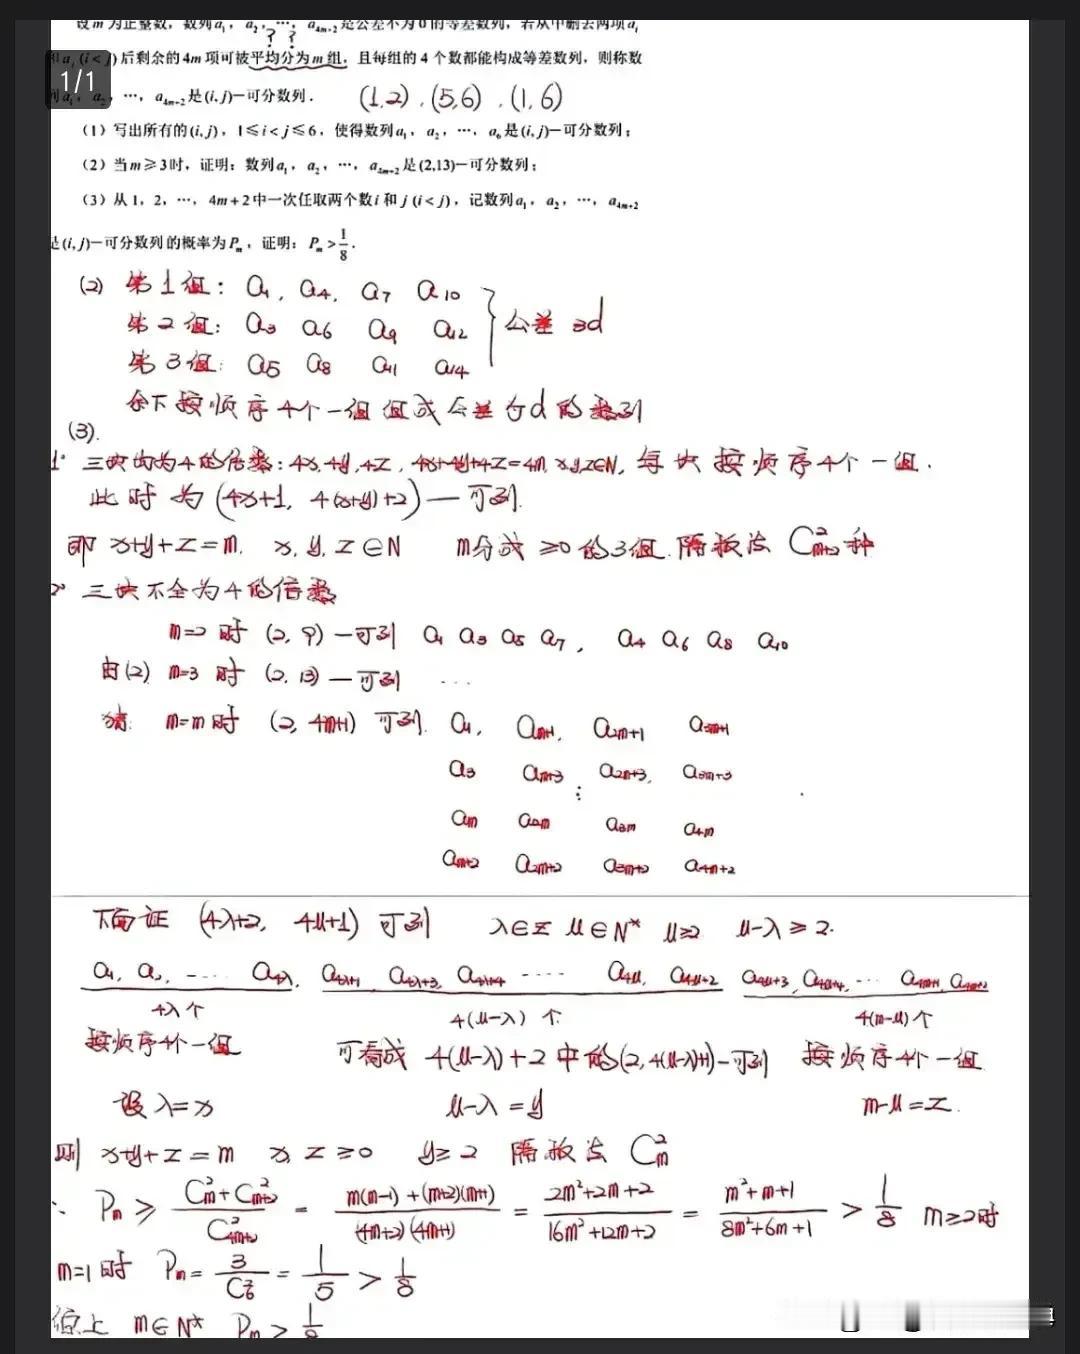 设m为正整数，数列a₁，a₂，…，a₄ₘ₊₂是公差不为0的等差数列，若从中删去两项aᵢ
? ?
和aⱼ(i<j)后剩余的4m项可被平均分为m组，且每组的4个数都能构成等差数列，则称数
1/1
列a₁，a₂，…，a₄ₘ₊₂是(i,j)—可分数列． (1,2)，(5,6)，(1,6)
(1) 写出所有的(i,j)，1≤i<j≤6，使得数列a₁，a₂，…，a₆是(i,j)—可分数列；
(2) 当m≥3时，证明：数列a₁，a₂，…，a₄ₘ₊₂是(2,13)—可分数列；
(3) 从1，2，…，4m+2中一次任取两个数i和j(i<j)，记数列a₁，a₂，…，a₄ₘ₊₂
是(i,j)—可分数列的概率为Pₘ，证明：Pₘ>1/8．
(2) 第1组：a₁，a₄，a₇ a₁₀
第2组：a₃ a₆ a₉ a₁₂ 公差3d
第3组：a₅ a₈ a₁₁ a₁₄
余下按顺序4个一组组成公差为d的数列
(3).
1° 三块均为4的倍数：4x,4y,4z，4x+4y+4z=4m, x,y,z∈N，每块按顺序4个一组．
此时为(4x+1，4(x+y)+2)—可列．
即 x+y+z=m. x,y,z∈N m分成≥0的3组.隔板法 C²ₘ₊₂种
2° 三块不全为4的倍数
m=2时 (2,9)—可列 a₁ a₃ a₅ a₇， a₄ a₆ a₈ a₁₀
由(2) m=3时 (2,13)—可列 ...
猜: m=m时 (2,4m+1)可列. a₁, aₘ₊₁, a₂ₘ₊₁ a₃ₘ₊₁
a₃ aₘ₊₃ a₂ₘ₊₃, a₃ₘ₊₃
⋮
aₘ a₂ₘ a₃ₘ a₄ₘ
aₘ₊₂ a₂ₘ₊₂ a₃ₘ₊₂ a₄ₘ₊₂
下面证 (4λ+2, 4μ+1)可列 λ∈Z μ∈N* μ≥2 μ-λ≥2.
a₁, a₂, ---- a₄λ, a₄λ₊₁ a₄λ₊₃, a₄λ₊₄ ---- a₄μ, a₄μ₊₂ a₄μ₊₃, a₄μ₊₄, … a₄ₘ₊₁, a₄ₘ₊₂
4λ个 4(μ-λ)个. 4(m-μ)个
按顺序4个一组 可看成 4(μ-λ)+2中的(2,4(μ-λ)+1)—可列 按顺序4个一组
设λ=x μ-λ=y m-μ=z.
则 x+y+z=m x,z≥0 y≥2 隔板法 C²ₘ
∴ Pₘ ≥ (C²ₘ+C²ₘ₊₂)/C²₄ₘ₊₂ = (m(m-1)+(m+2)(m+1))/((4m+2)(4m+1)) = (2m²+2m+2)/(16m²+12m+2) = (m²+m+1)/(8m²+6m+1) > 1/8 m≥2时
m=1时 Pₘ = 3/C²₆ = 1/5 > 1/8
综上 m∈N* Pₘ > 1/8